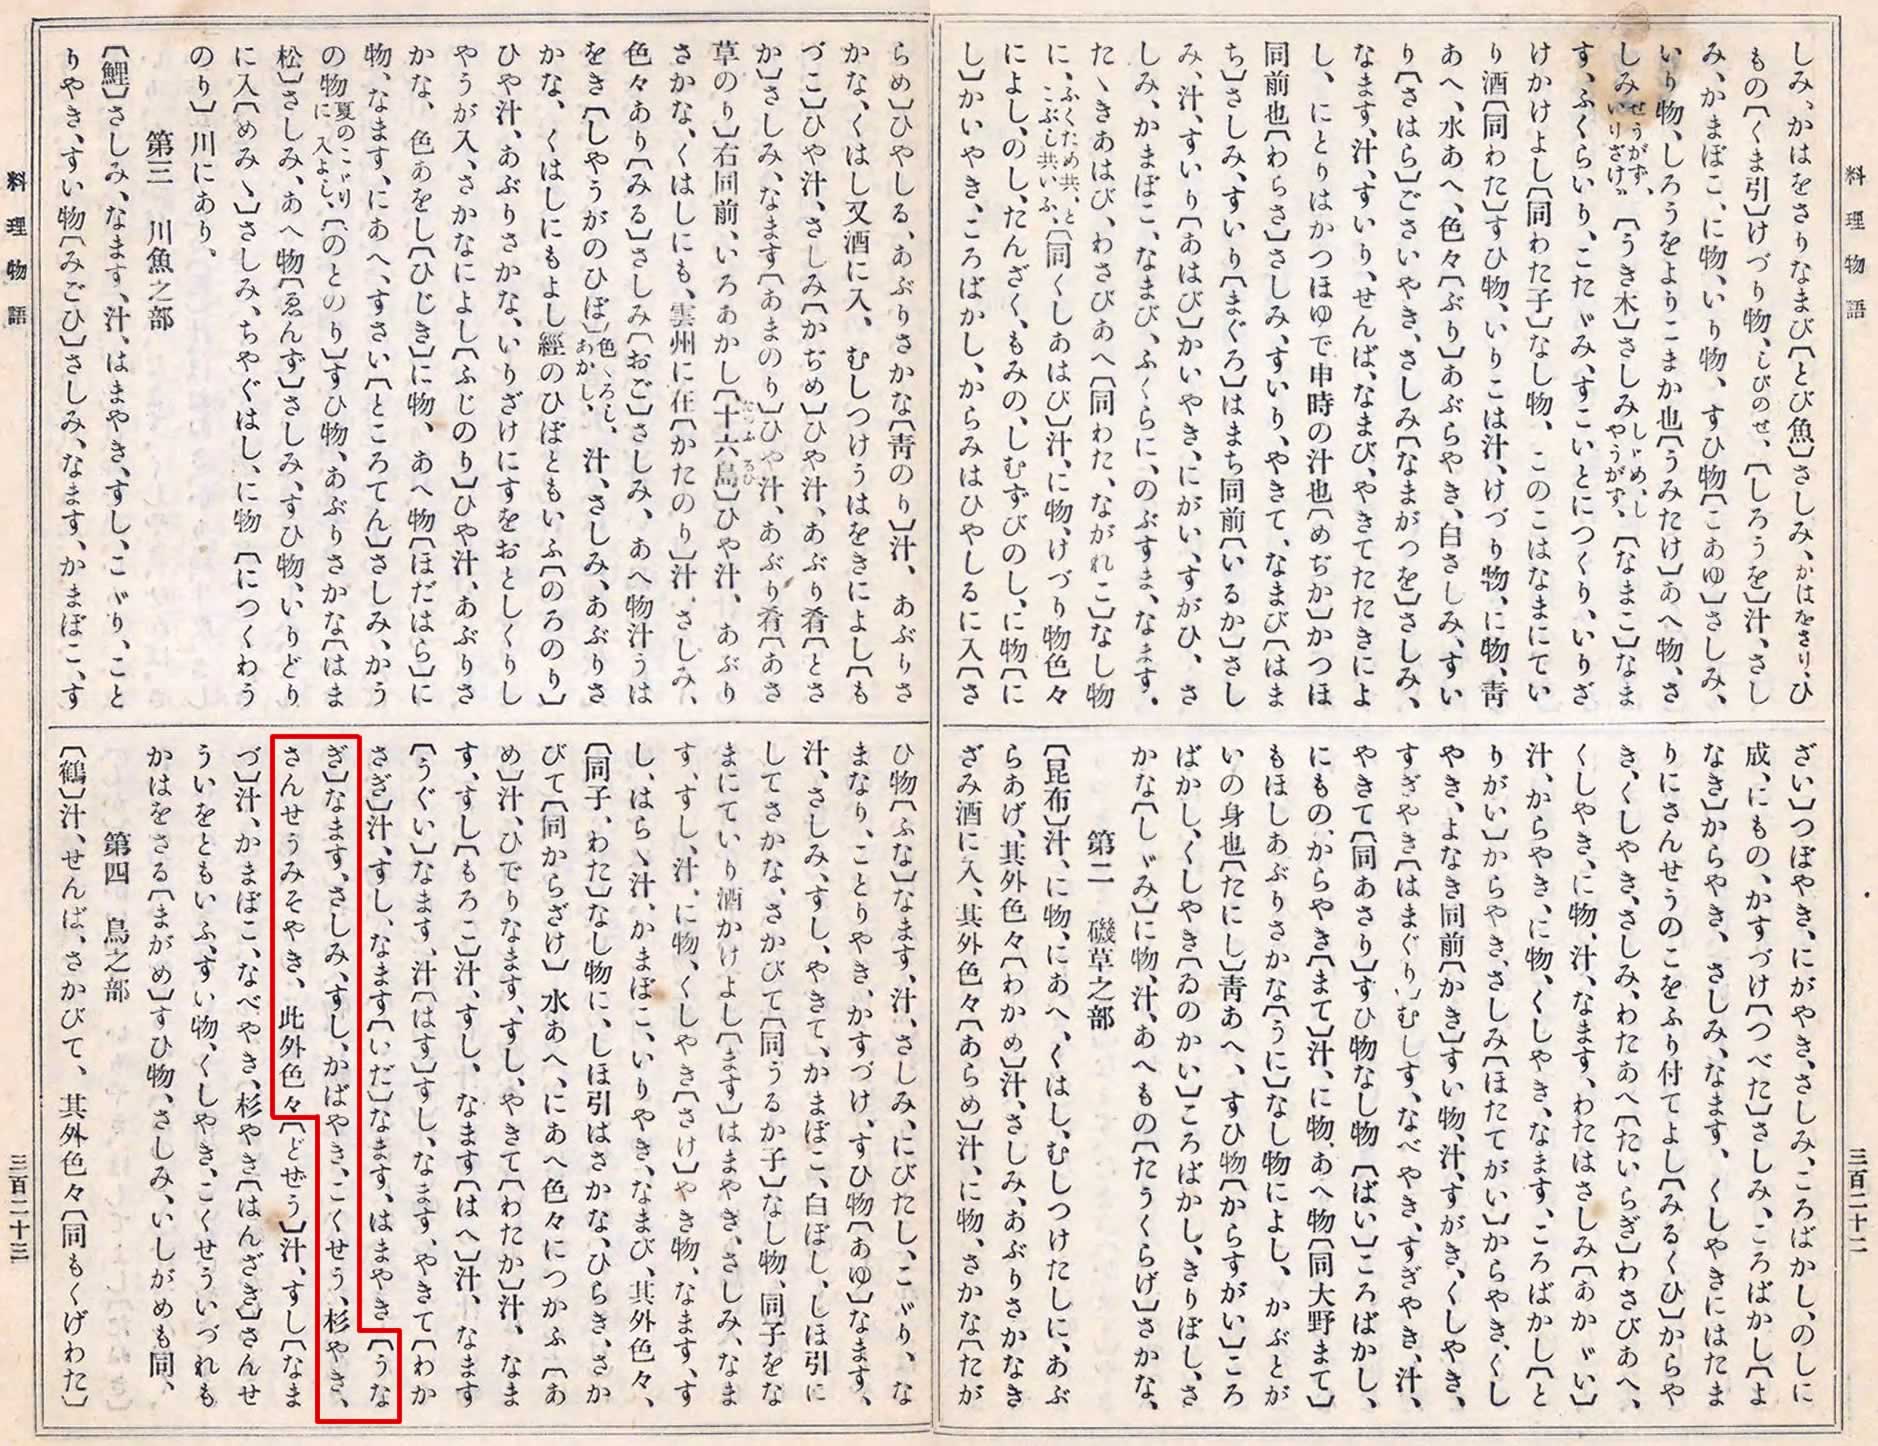 料理物語
しみ、かはをさりなまび〔とび魚〕さしみ、かはをさり、ひ
もの〔くま引〕けづり物、しびのせ、〔しろうを〕汁、さし
み、かまぼこ、に物、いり物、すひ物〔こあゆ〕さしみ、
いり物、しろうをよりこまか也〔うみたけ〕あへ物、さ
しみせうがず、いりざけ〔うき木〕さしみしゞめ、しやうがず、〔なまこ〕なま
す、ふくらいり、こたゞみ、すこいとにつくり、いりざ
けかけよし〔同わた子〕なし物、このこはなまにてい
り酒〔同わた〕すひ物、いりこは汁、けづり物、に物、靑
あへ、水あへ、色々〔ぶり〕あぶらやき、白さしみ、すい
り〔さはら〕ごさいやき、さしみ〔なまがつを〕さしみ、
なます、汁、すいり、せんば、なまび、やきてたたきによ
し、にとりはかつほゆで申時の汁也〔めぢか〕かつほ
同前也〔わらさ〕さしみ、すいり、やきて、なまび〔はま
ち〕さしみ、すいり〔まぐろ〕はまち同前〔いるか〕さし
み、汁、すいり〔あはび〕かいやき、にがい、すがひ、さ
しみ、かまぼこ、なまび、ふくらに、のぶすま、なます、
たゝきあはび、わさびあへ〔同わた、ながれこ〕なし物
に、ふくため共、とこぶし共いふ、〔同くしあはび〕汁、に物、けづり物色々
によし、のし、たんざく、もみの、しむずびのし、に物〔に
し〕かいやき、ころばかし、からみはひやしるに入〔さ
ざい〕つぼやき、にがやき、さしみ、ころばかし、のしに
成、にもの、かすづけ〔つべた〕さしみ、ころばかし〔よ
なき〕からやき、さしみ、なます、くしやきにはたま
りにさんせうのこをふり付てよし〔みるくひ〕からや
き、くしやき、さしみ、わたあへ〔たいらぎ〕わさびあへ、
くしやき、に物、汁、なます、わたはさしみ〔あかゞい〕
汁、からやき、に物、くしやき、なます、ころばかし〔と
りがい〕からやき、さしみ〔ほたてがい〕からやき、くし
やき、よなき同前〔かき〕すい物、汁、すがき、くしやき、
すぎやき〔はまぐり〕むしす、なべやき、すぎやき、汁、
やきて〔同あさり〕すひ物なし物〔ばい〕ころばかし、
にもの、からやき〔まて〕汁、に物、あへ物〔同大野まて〕
もほしあぶりさかな〔うに〕なし物によし、かぶとが
いの身也〔たにし〕靑あへ、すひ物〔からすがい〕ころ
ばかし、くしやき〔ゐのかい〕ころばかし、きりぼし、さ
かな〔しゞみ〕に物、汁、あへもの〔たうくらげ〕さかな、
第二　磯草之部
〔昆布〕汁、に物、にあへ、くはし、むしつけたしに、あぶ
らあげ、其外色々〔わかめ〕汁、さしみ、あぶりさかなき
ざみ酒に入、其外色々〔あらめ〕汁、に物、さかな〔たが
三百二十二
らめ〕ひやしる、あぶりさかな〔靑のり〕汁、あぶりさ
かな、くはし又酒に入、むしつけうはをきによし〔も
づこ〕ひや汁、さしみ〔かぢめ〕ひや汁、あぶり肴〔とさ
か〕さしみ、なます〔あまのり〕ひや汁、あぶり肴〔あさ
草のり〕右同前、いろあかし〔十六島〕ひや汁、あぶり
さかな、くはしにも、雲州に在〔かたのり〕汁、さしみ、
色々あり〔みる〕さしみ〔おご〕さしみ、あへ物汁うは
をき〔しやうがのひぼ〕色ゝろし、あかし、汁、さしみ、あぶりさ
かな、くはしにもよし經のひぼともいふ〔のろのり〕
ひや汁、あぶりさかな、いりざけにすをおとしくりし
やうが入、さかなによし〔ふじのり〕ひや汁、あぶりさ
かな、色あをし〔ひじき〕に物、あへ物〔ほだはら〕に
物、なます、にあへ、すさい〔ところてん〕さしみ、かう
の物夏のこゞりに入よし、〔のとのり〕すひ物、あぶりさかな〔はま
松〕さしみ、あへ物〔ゑんず〕さしみ、すひ物、いりどり
に入〔めみゝ〕さしみ、ちやぐはし、に物〔につくわう
のり〕川にあり、
第三　川魚之部
〔鯉〕さしみ、なます、汁、はまやき、すし、こゞり、こと
りやき、すい物〔みごひ〕さしみ、なます、かまぼこ、す
ひ物〔ふな〕なます、汁、さしみ、にびたし、こゞり、な
まなり、ことりやき、かすづけ、すひ物〔あゆ〕なます、
汁、さしみ、すし、やきて、かまぼこ、白ぼし、しほ引に
してさかな、さかびて〔同うるか子〕なし物、同子をな
まにていり酒かけよし〔ます〕はまやき、さしみ、なま
す、すし、汁、に物、くしやき〔さけ〕やき物、なます、す
し、はらゝ汁、かまぼこ、いりやき、なまび、其外色々、
〔同子、わた〕なし物に、しほ引はさかな、ひらき、さか
びて〔同からざけ〕水あへ、にあへ色々につかふ〔あ
め〕汁、ひでりなます、すし、やきて〔わたか〕汁、なま
す、すし〔もろこ〕汁、すし、なます〔はへ〕汁、なます
〔うぐい〕なます、汁〔はす〕すし、なます、やきて〔わか
さぎ〕汁、すし、なます〔いだ〕なます、はまやき〔うな
ぎ〕なます、さしみ、すし、かばやき、こくせう、杉やき、
さんせうみそやき、此外色々〔どぜう〕汁、すし〔なま
づ〕汁、かまぼこ、なべやき、杉やき〔はんざき〕さんせ
ういをともいふ、すい物、くしやき、こくせういづれも
かはをさる〔まがめ〕すひ物、さしみ、いしがめも同、
第四　鳥之部
〔鶴〕汁、せんば、さかびて、其外色々〔同もくげわた〕
料理物語
三百二十三